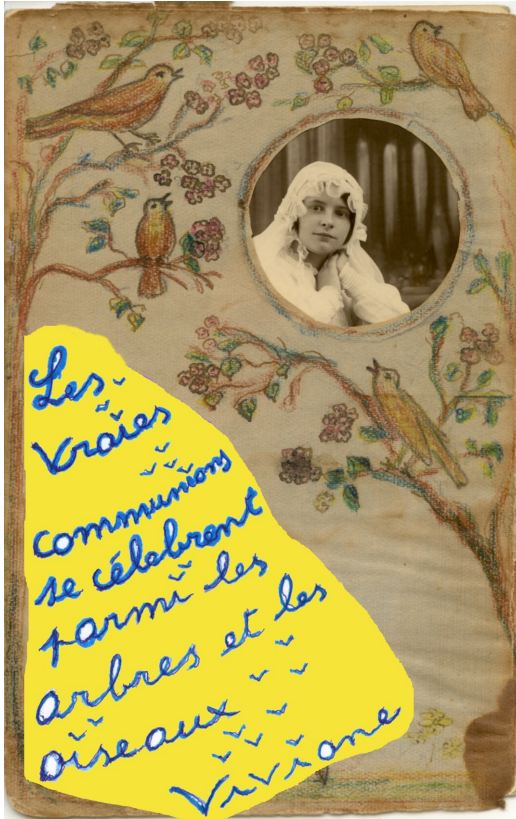 Les
vraies
communions
se célebrent
parmi les
arbres et les
oiseaux
Viviane